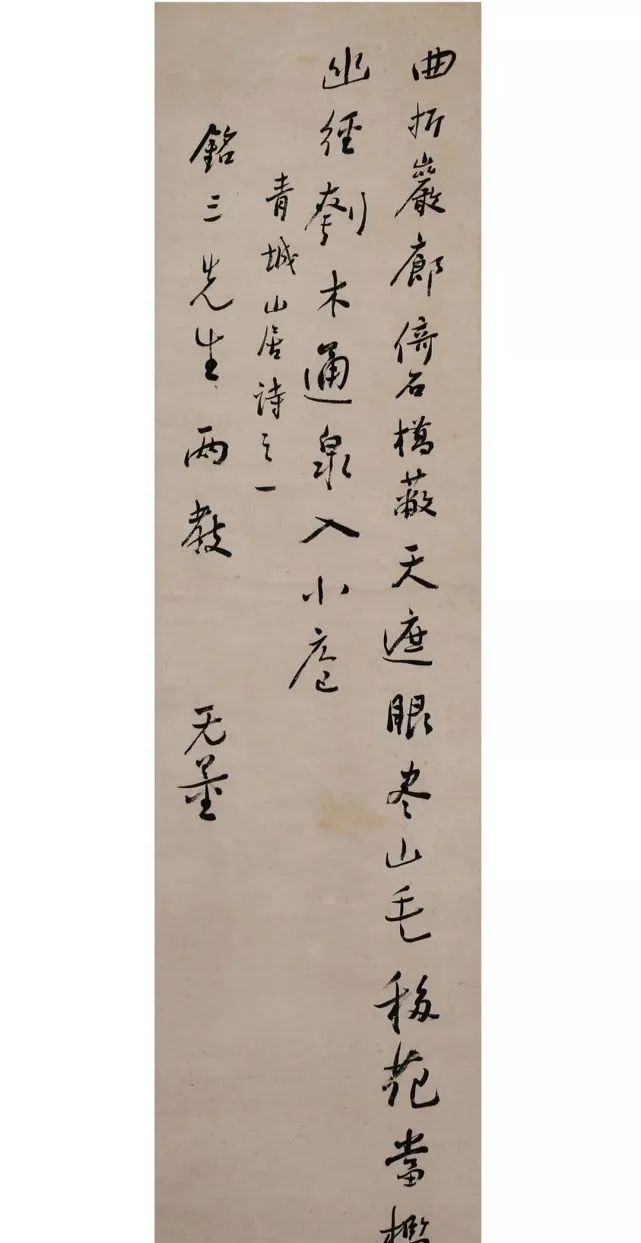 曲折巖廊倚石橋蔽天遮眼盡山毛移花當檻
幽徑刳木通泉入小庖
青城山居詩之一
銘三先生兩教
无量